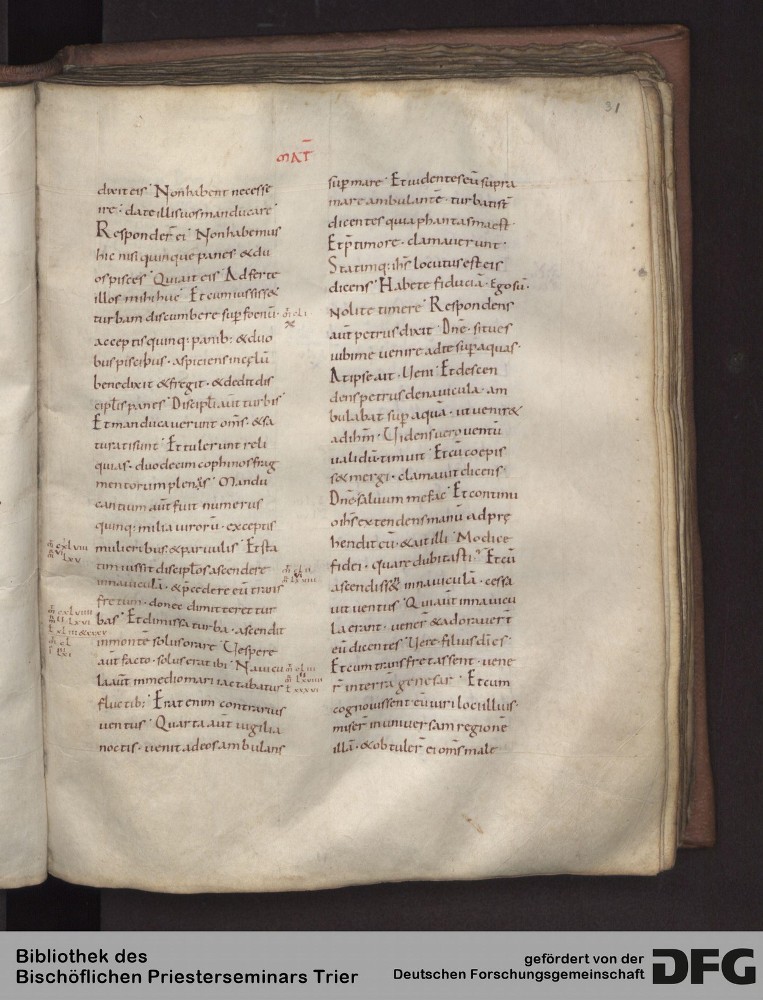 31
MAT̅
dixit eis Non habent necesse
ire · date illis uos manducare
Responder̅ ei Non habemus
hic nisi quinque panes & du
os pisces Qui ait eis Adferte
illos mihi huc Et cum iussiss&
turbam discumbere sup foenū ·
acceptis quinq; panib; & duo
bus piscibus · aspiciens in cęlū
benedixit & fregit · & dedit dis
cipl̅is panes Discipl̅i aūt turbis
Et manducauerunt om̅s · & sa
turati sunt Et tulerunt reli
quias · duodecim cophinos frag
mentorum plenos Mandu
cantium aūt fuit numerus
quinq; milia uirorū · exceptis
mulieribus & paruulis Et sta
tim iussit discipl̅os ascendere
in nauiculā · & p̅cedere eū trans
fretum · donec dimitteret tur
bas Et dimissa turba · ascendit
in montē solus orare Uespere
aūt facto · solus erat ibi Nauicu
la aūt in medio mari iactabatur
fluctib; Erat enim contrarius
uentus Quarta aūt uigilia
noctis · uenit ad eos ambulans
sup mare Et uidentes eū supra
mare ambulantē · turbati st̅
dicentes quia phantasma est
Et p̅ timore · clamauerunt ·
Statimq; ih̅s locutus est eis
dicens Habete fiduciā · Ego sū ·
Nolite timere Respondens
aūt petrus dixit Dn̅e · si tu es
iube me uenire ad te sup aquas ·
At ipse ait · Ueni Et descen
dens petrus de nauicula · am
bulabat sup aqua · ut uenir&
ad ih̅m · Uidens uero uentū
ualidū · timuit Et cū coepis
s& mergi · clamauit dicens
Dn̅e · saluum me fac Et continu
o ih̅s extendens manū adprę
hendit eū · & ait illi Modice
fidei · quare dubitasti Et cū
ascendiss& in nauiculā · cessa
uit uentus Qui aūt in nauicu
la erant · uener̅ & adorauer̅t
eū dicentes Uere filius dī es
Et cum transfretassent · uene
r̅ in terrā genesar Et cum
cognouissent eū uiri loci illius ·
miser̅ in uniuersam regionē
illā · & obtuler̅ ei om̅s male
Bibliothek des
Bischöflichen Priesterseminars Trier
gefördert von der
Deutschen Forschungsgemeinschaft
DFG